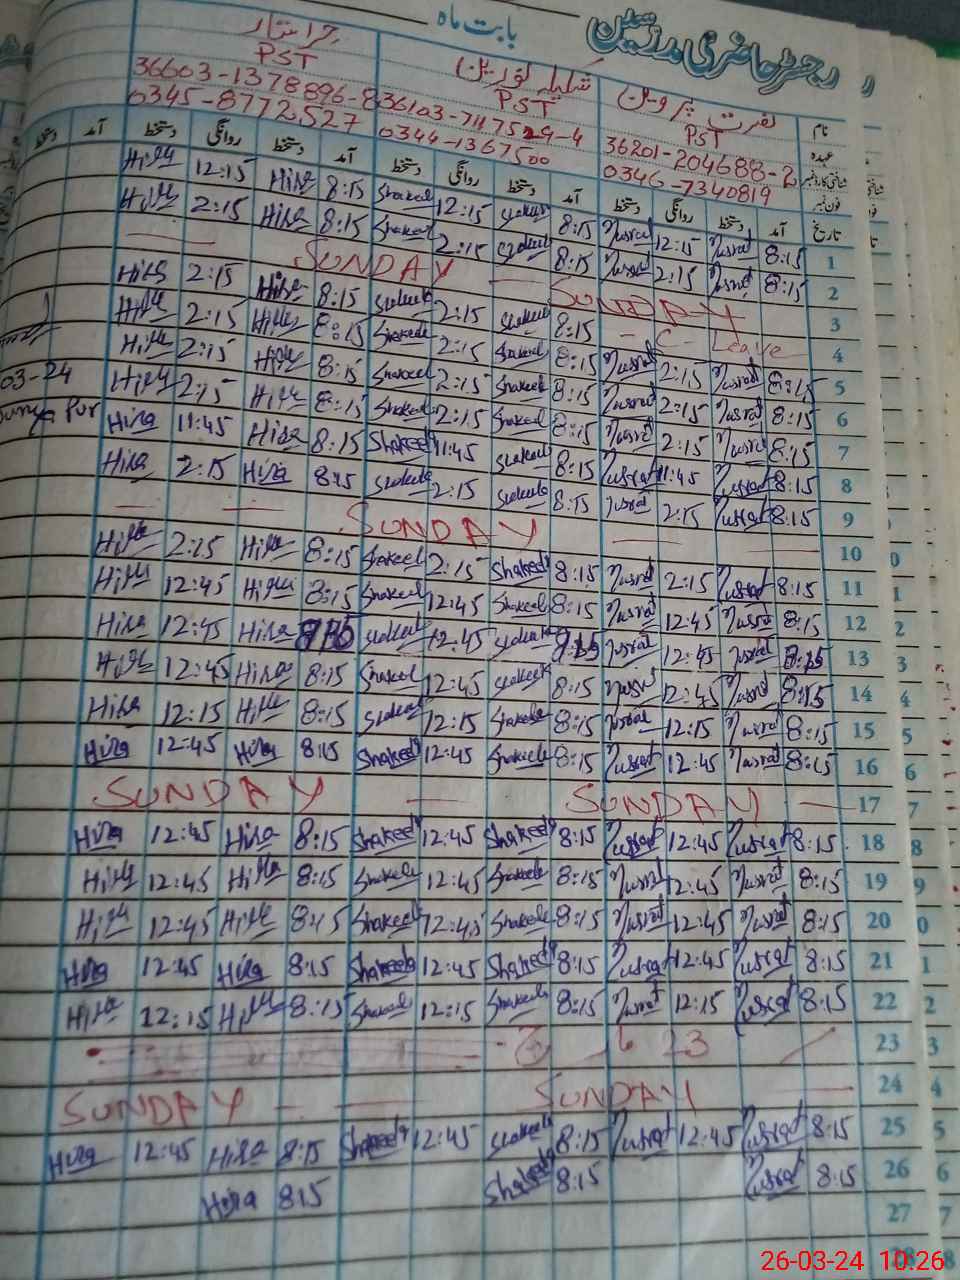 رجسٹر حاضری مدرسین بابت ماہ
نام نصرت پروین شکیلہ نورین حرا ستار
عہدہ PST PST PST
شناختی کارڈ نمبر 36201-204688-2 36103-7117529-4 36603-1378896-8
فون نمبر 0346-7340819 0344-1367500 0345-8772527
تاریخ آمد دستخط روانگی دستخط آمد دستخط روانگی دستخط آمد دستخط روانگی دستخط آمد دستخط
1 8:15 Nusrat 12:15 Nusrat 8:15 Shakeela 12:15 Shakeela 8:15 Hira 12:15 Hira
2 8:15 Nusrat 2:15 Nusrat 8:15 Shakeela 2:15 Shakeela 8:15 Hira 2:15 Hira
3 SUNDAY SUNDAY
4 - C - Leave 8:15 Shakeela 2:15 Shakeela 8:15 Hira 2:15 Hira
5 8:15 Nusrat 2:15 Nusrat 8:15 Shakeela 2:15 Shakeela 8:15 Hira 2:15 Hira
6 8:15 Nusrat 2:15 Nusrat 8:15 Shakeela 2:15 Shakeela 8:15 Hira 2:15 Hira
7 8:15 Nusrat 2:15 Nusrat 8:15 Shakeela 2:15 Shakeela 8:15 Hira 2:15 Hira 03-24
8 8:15 Nusrat 11:45 Nusrat 8:15 Shakeela 11:45 Shakeela 8:15 Hira 11:45 Hira Pur
9 8:15 Nusrat 2:15 Nusrat 8:15 Shakeela 2:15 Shakeela 8:15 Hira 2:15 Hira
10 SUNDAY
11 8:15 Nusrat 2:15 Nusrat 8:15 Shakeela 2:15 Shakeela 8:15 Hira 2:15 Hira
12 8:15 Nusrat 12:45 Nusrat 8:15 Shakeela 12:45 Shakeela 8:15 Hira 12:45 Hira
13 8:15 Nusrat 12:45 Nusrat 8:15 Shakeela 12:45 Shakeela 8:15 Hira 12:45 Hira
14 8:15 Nusrat 12:45 Nusrat 8:15 Shakeela 12:45 Shakeela 8:15 Hira 12:45 Hira
15 8:15 Nusrat 12:15 Nusrat 8:15 Shakeela 12:15 Shakeela 8:15 Hira 12:15 Hira
16 8:15 Nusrat 12:45 Nusrat 8:15 Shakeela 12:45 Shakeela 8:15 Hira 12:45 Hira
17 SUNDAY SUNDAY
18 8:15 Nusrat 12:45 Nusrat 8:15 Shakeela 12:45 Shakeela 8:15 Hira 12:45 Hira
19 8:15 Nusrat 12:45 Nusrat 8:15 Shakeela 12:45 Shakeela 8:15 Hira 12:45 Hira
20 8:15 Nusrat 12:45 Nusrat 8:15 Shakeela 12:45 Shakeela 8:15 Hira 12:45 Hira
21 8:15 Nusrat 12:45 Nusrat 8:15 Shakeela 12:45 Shakeela 8:15 Hira 12:45 Hira
22 8:15 Nusrat 12:15 Nusrat 8:15 Shakeela 12:15 Shakeela 8:15 Hira 12:15 Hira
23 23
24 SUNDAY SUNDAY
25 8:15 Nusrat 12:45 Nusrat 8:15 Shakeela 12:45 Shakeela 8:15 Hira 12:45 Hira
26 8:15 Nusrat 8:15 Shakeela 8:15 Hira
27
28
26-03-24 10:26